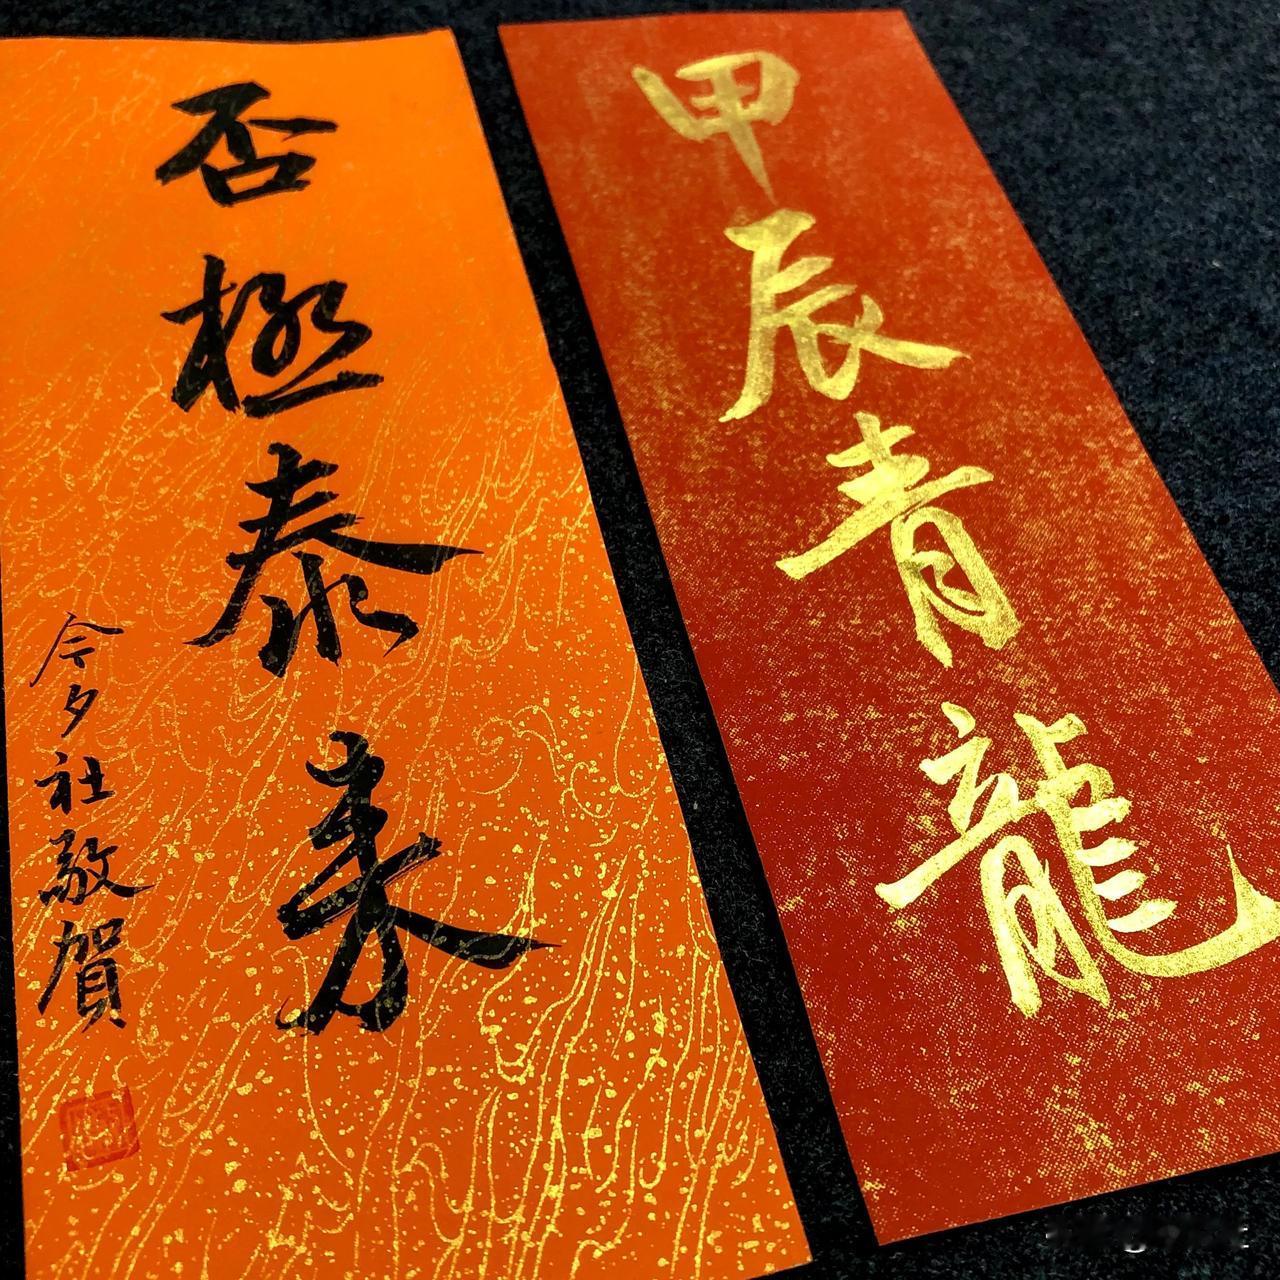 甲辰青龍
否極泰来
今夕社敬賀